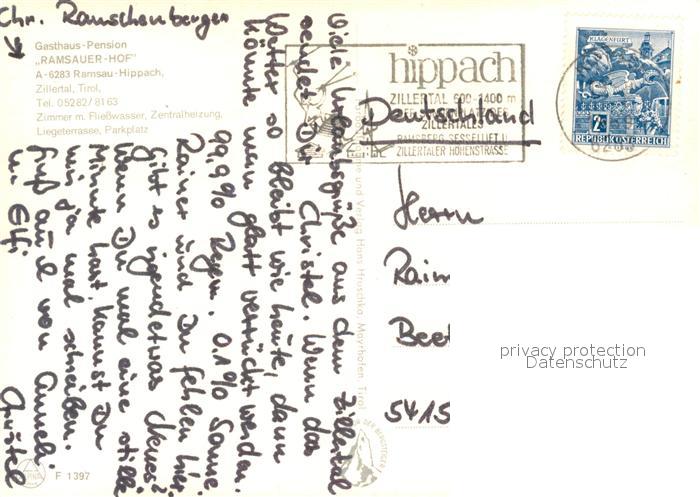 Chr. Ramschenberger
Gasthaus-Pension
„RAMSAUER-HOF"
A-6283 Ramsau-Hippach,
Zillertal, Tirol,
Tel. 05282/8163
Zimmer m. Fließwasser, Zentralheizung,
Liegeterrasse, Parkplatz
Viele Urlaubsgrüße aus dem Zillertal
sendet Dir Christel. Wenn das
Wetter so bleibt wie heute, dann
könnte man glatt verrückt werden.
99,9% Regen, 0,1% Sonne
Rainer und Du fehlen hier.
Gibt es irgendetwas Neues?
Wenn Du mal eine stille
Minute hast, kannst Du
mir ja mal schreiben.
Gruß auch von Anneli
u. Elfi
Christel
F 1397
und Verlag Hans Hruschka, Mayrhofen, Tirol
DER BERGSTEIGER
hippach
ZILLERTAL 600-2400 m
ZILLERTALES
RAMSBERG SESSELLIFT
ZILLERTALER HÖHENSTRASSE
KLAGENFURT
2S
REPUBLIK ÖSTERREICH
Deutschland
Herrn
Rain
Beet
5415
privacy protection
Datenschutz